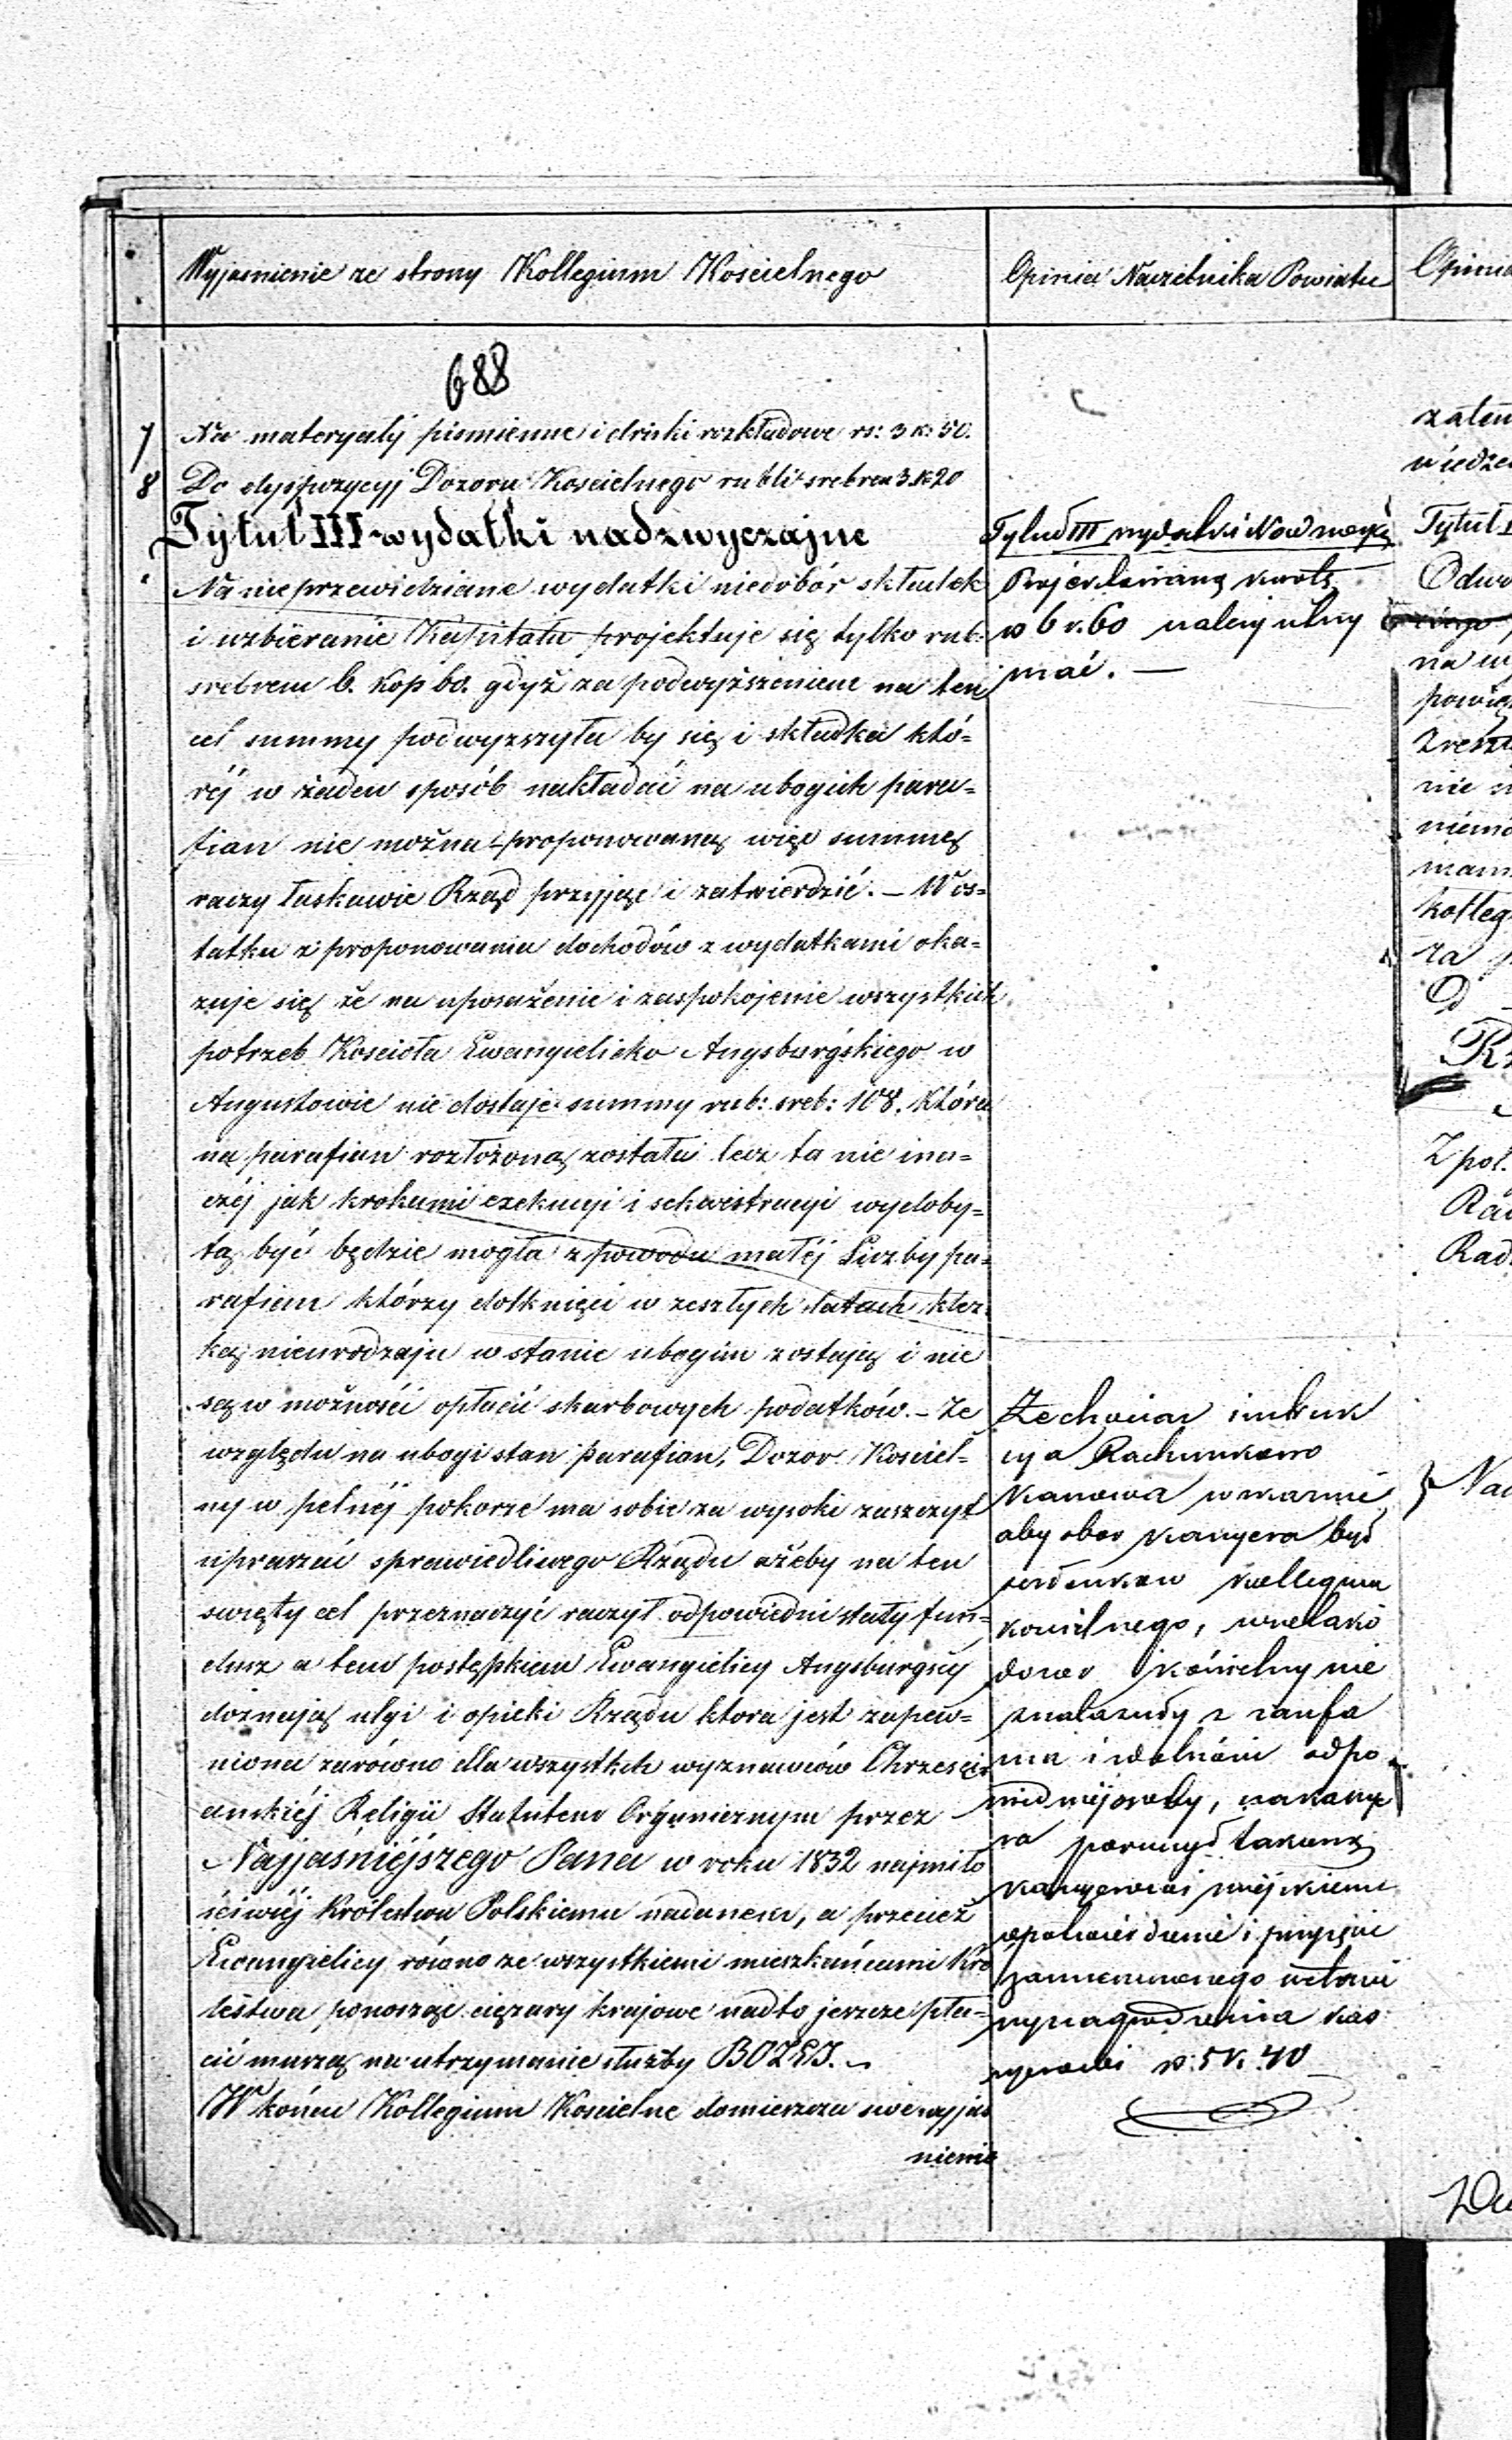 Wyjasnienie ze strony Kollegium Koscielnego
Opinia Naczelnika Powiatu
Opinia
688
7 Na materyały pismienne i druki rozkładowe rs: 3 k: 50.
8 Do dyspozycyj Dozoru Koscielnego rubli srebrem 3 k 20
Tytuł III wydatki nadzwyczajne
Na nie przewidziane wydatki niedobór składek
i uzbieranie Kapitału projektuje się tylko rub:
srebrem 6. kop 60. gdyż za podwyższeniem na ten
cel summy podwyzszyła by się i składka któ=
réj w żaden sposób nakładać na ubogich para=
fian nie można proponowaną więc summę
raczy łaskawie Rząd przyjąć i zatwierdzić. – W os=
tatku z proponowania dochodów z wydatkami oka=
zuje się że na uposażenie i zaspokojenie wszystkich
potrzeb Koscioła Ewangielicko Augsburgskiego w
Augustowie nie dostaje summy rub: sreb: 108. która
na parafian rozłożoną została lecz ta nie ina=
czéj jak krokami exekucyi i sekwestracyi wydoby=
tą być będzie mogła z powodu małéj Liczby pa=
rafian którzy dotknięci w zeszłych latach klęs
ką nieurodzaju w stanie ubogim zostają i nie
są w możności opłacić skarbowych podatków. – Ze
względu na ubogi stan parafian, Dozor Kosciel=
ny w pełnéj pokorze ma sobie za wysoki zaszczyt
upraszać sprawiedliwego Rządu ażeby na ten
swięty cel przeznaczyć raczył odpowiedni stały fun=
dusz a tem postępkiem Ewangielicy Augsburgscy
doznają ulgi i opieki Rządu ktora jest zapew=
niona zarówno dla wszystkich wyznawców Chrzesci
anskiéj Religii Statutem Organicznym przez
Najjaśniéjszego Pana w roku 1832 najmiło
ściwiéj Królestwu Polskiemu nadanem, a przecież
Ewangielicy równo ze wszystkiemi mieszkańcami Kró
lestwa ponosząc ciężary krajowe nadto jeszcze pła=
cić muszą na utrzymanie służby BOZEJ. –
W końcu Kollegium Koscielne domieszcza swe wyjas
nienie
Tytuł III wydatki Nadzwyc
Projektowaną kwotę
rs 6 k. 60 należy utrzy
mać. –
Ze chociaz instruk
cya Rachunkowo
Kassowa
aby obor kassyera był
członkow Kollegium
koscielnego, wszelako
dozor kościelny nie
znalazłszy z zaufa
nia i zdolności odpo
wiedniéj osoby, na kassye
ra poruczył takową
kassyerowi miéjskiemu
i przyjęcie
wynagrodzenia kas
syerowi rs: 5 k. 40
zaten
wiedze
Tytuł I
Odwo
na wy
powię
Zreszt
nie
niemo
mam
kolleg
za
Z pol.
Rad
Rad.
Nac